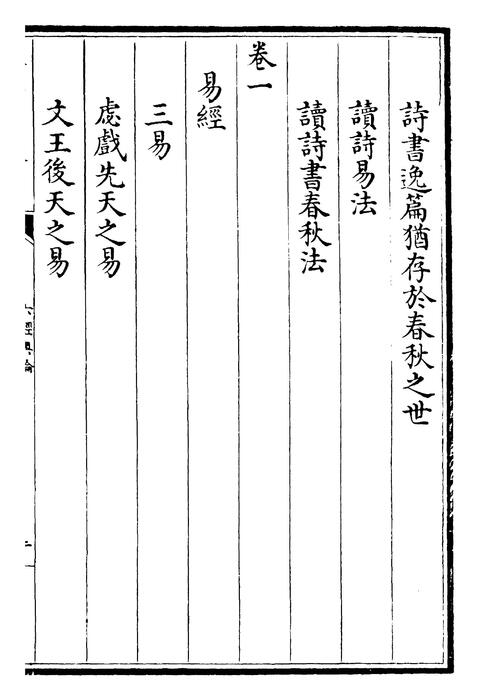 詩書逸篇猶存於春秋之世
讀詩易法
讀詩書春秋法
卷一
易經
三易
虙戲先天之易
文王後天之易
六經奧論